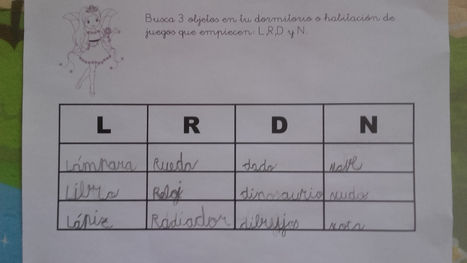 Busca 3 objetos en tu dormitorio o habitación de
juegos que empiecen: L,R,D y N.
L R D N
Lámpara Rueda dado nave
Libro Reloj dinosaurio nudos
Lápiz Radiador dibujos nota